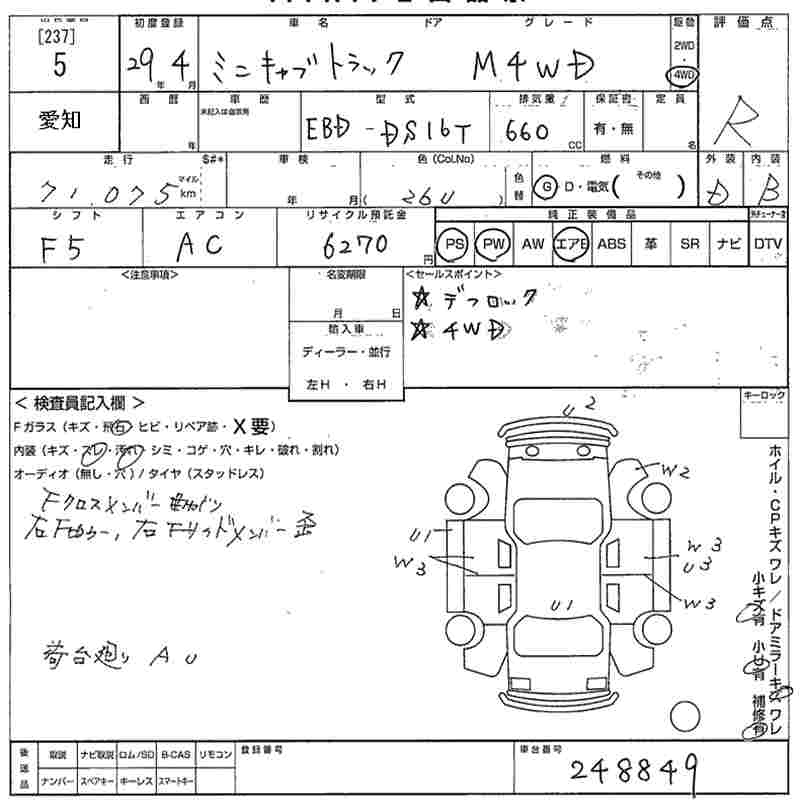 [237]
5
初度登録
29年 4月
車名 ドア グレード
ミニキャブトラック M 4WD
駆動
2WD
4WD
評価点
R
愛知
西暦
年
車歴
未記入は自家用
型式
EBD-DS16T
排気量
660 CC
保証書
有・無
定員
名
走行 S#*
71,075 マイル km
車検
年 月
色(Col.No)
( 26U )
色替
燃料
G・D・電気( その他 )
外装
D
内装
B
シフト
F5
エアコン
AC
リサイクル預託金
6270 円
純正装備品
PS PW AW エアB ABS 革 SR ナビ DTV
<注意事項>
名変期限
月 日
輸入車
ディーラー・並行
左H ・ 右H
<セールスポイント>
☆ デフロック
☆ 4WD
キーロック
< 検査員記入欄 >
Fガラス(キズ・飛石・ヒビ・リペア跡・X要)
内装(キズ・スレ・汚れ・シミ・コゲ・穴・キレ・破れ・割れ)
オーディオ(無し・穴)/タイヤ(スタッドレス)
Fクロスメンバー
右F 、右Fサイドメンバー歪
荷台廻り A U
U2
W2
U1
W3
W3
U3
W3
U1
ホイル・CPキズ ワレ/ドアミラーキズ ワレ
小キズ有 小U有 補修有
後送品
取説 ナビ取説 ロム/SD B-CAS リモコン
ナンバー スペアキー キーレス スマートキー
登録番号
車台番号
248849